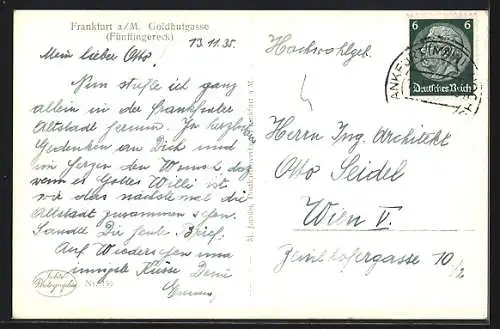 Frankfurt a/M. Goldhutgasse
(Fünffingereck)
13.11.35.
Mein lieber Otto!
Nun stapfe ich ganz
allein in der Frankfurter
Altstadt herum. In herzlichem
Gedenken an Dich und
im Herzen den Wunsch, daß
wenn es Gottes Wille ist
wir das nächste mal die
Altstadt zusammen sehen.
Sandte Dir heute Brief.
Auf Wiedersehen und
innigste Küsse Deine
Echte
Photographie
Nr.
Hochwohlgeb.
Herrn Ing. Architekt
Otto Seidel
Wien V.
Zeinlhofergasse 10/2
6 6
Deutsches Reich